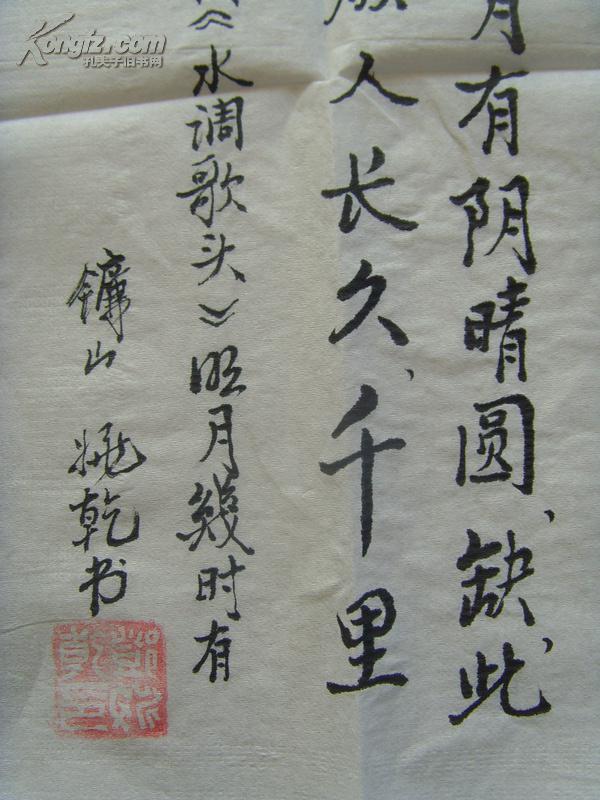 月有阴晴圆缺此
人长久千里
《水调歌头》明月幾时有
山 姚乾书
Kongfz.com
孔夫子旧书网